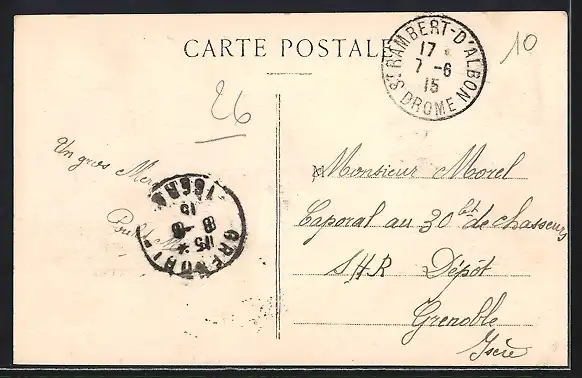 CARTE POSTALE
ST RAMBERT-D'ALBON
17 *
7 -6
15
DROME
10
26
Un gros Merci
GRENOBLE
ISERE
15
8 -6
Monsieur Morel
Caporal au 30 bt de chasseurs
SHR Dépôt
Grenoble
Isère